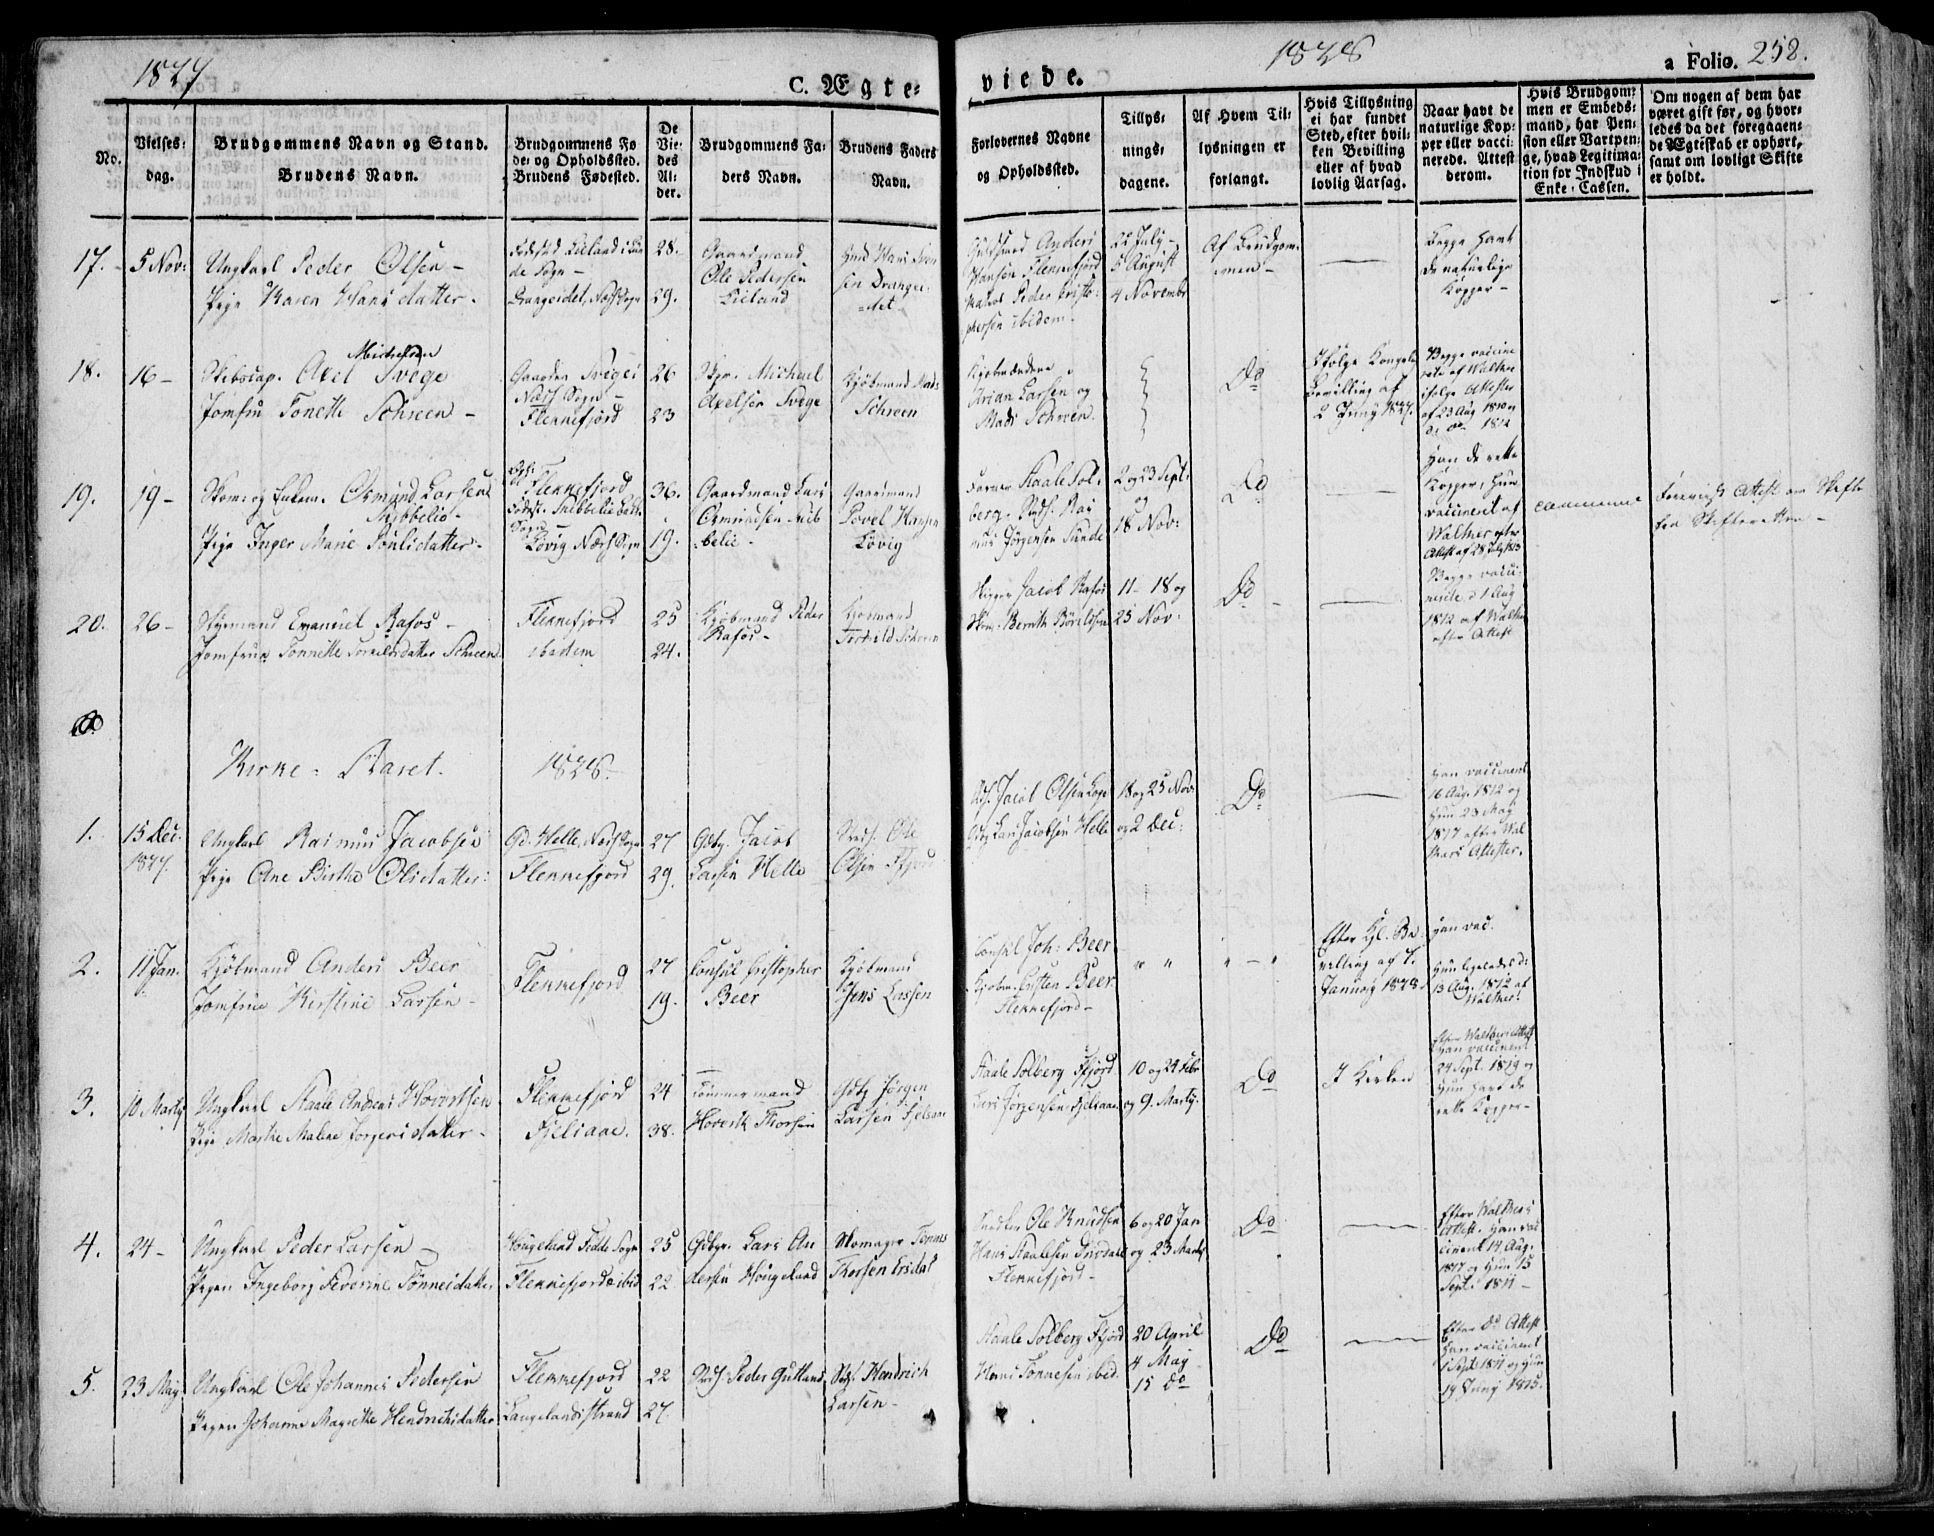 1827
C. Ægte-
viede.
1828
a Folio. 258.
No.
Vielses-
dag.
Brudgommens Navn og Stand.
Brudens Navn.
Brudgommens Fø
de- og Opholdssted.
Brudens Fødested.
De
Vie-
des
Al-
der.
Brudgommens Fa-
ders Navn.
Brudens Faders
Navn.
Forlovernes Navne
og Opholdssted.
Tillys-
nings-
dagene.
Af Hvem Til-
lysningen er
forlangt.
Hvis Tillysning
ei har fundet
Sted, efter hvil-
ken Bevilling
eller af hvad
lovlig Aarsag.
Naar havt de
naturlige Kop-
per eller vacci-
nerede. Attest
derom.
Hvis Brudgom-
men er Embeds-
mand, har Pen-
sion eller Vartpen-
ge, hvad Legitima-
tion for Indskud i
Enke-Cassen.
Om nogen af dem har
været gift før, og hvor-
ledes da det foregaaen-
de Ægteskab er ophørt,
samt om lovligt Skifte
er holdt.
17. 5 Nov:
Ungkarl Peder Olsen -
Pige Karen Hansdatter.
Sogn -
Drangeidet, Næs Sogn
28.
29.
Gaardmand
Ole Pedersen
Lieland
Drangei-
det
Anders
Hansen Flekkefjord
Peder Christo-
phersen ibidem.
22 July -
5 August
4 Novembr
Af Brudgom-
men -
Begge havt
de naturlige
Kopper -
18. 16 -
Michelsen
Skibscap. Axel Svege
Jomfru Tonette Schreen -
Gaarden Svege i
Næs Sogn -
Flekkefjord
26
23
Michael
Axelsen Svege
Kjøbmand Mads
Schreen
Kjøbmændene
Arian Larsen og
Mads Schreen.
Do
Ifølge Kongelig
Bevilling af
2 Juny 1827.
Begge vaccine
rede af Walther
ifølge Attester
af 23 Aug 1810 og
do do 1812
19. 19 -
Skom: og Enkem. Osmund Larsen
Skibbelie -
Pige Inger Marie Povlsdatter -
Flekkefjord
Sogn -
Løvig Næs Sogn
36.
19.
Gaardmand Lars
Osmundsen Skib
belie -
Gaardmand
Povel Hansen
Løvig
Staale Sol-
berg.
Jørgensen Sunde
2 og 23 Sept:
og
18 Nov:
Do
Han de rette
Kopper, hun
vaccineret af
Walther efter
Attest af 28 July 1813
Attest om Skifte
fra Skifteretten -
20. 26 -
Styrmand Emanuel Rafos -
Jomfrue Tonnette Torkildsdatter Schreen
Flekkefjord
ibidem
25
24.
Kjøbmand Peder
Rafos -
Torkild Schreen
Skipper Jacob Rafos
Skom: Bernth Børildsen
11 - 18 og
25 Nov:
Do -
Begge vacci-
nerede d 1 Aug
1812 af Walther
efter Attest
Kirke - Aaret. 1828.
1. 15 Dec.
1827.
Ungkarl Rasmus Jacobsen
Pige Ane Birthe Olsdatter:
Gd. Helle, Næs Sogn
Flekkefjord
27
29.
Gdbr. Jacob
Larsen Helle
Ole
Olsen Fjord
Jacob Olsen Loge
Lars Jacobsen Helle
18 og 25 Nov:
og 2 Dec:
Do
Han vaccineret
16 Aug. 1812 og
hun 23 May
1817 efter Wal
thers Attester.
2. 11 Jan.
Kjøbmand Anders Beer
Jomfrue Kirstine Larsen -
Flekkefjord
27
19.
Consul Cristopher
Beer
Kjøbmand
Jens Lassen
Consul Joh: Beer
Kjøbm. Cristen Beer
Flekkefjord -
" "
" - "
Efter Kgl. Be-
villing af 7.
January 1828.
Han vac.
Hun ligeledes d:
13 Aug. 1812 af
Walther.
3. 10 Marty
Ungkarl Staale Andreas Hovertsen
Pige Marthe Malene Jørgensdatter -
Flekkefjord
Fjelsaae.
24
38.
Tømmermand
Hoverth Thorsen
Gdbr Jørgen
Larsen Fjelsaae
Staale Solberg Fjord
Lars Jørgensen Fjelsaae
10 og 24 Febr
og 9. Marty.
Do
I Kirken
Efter Walthers Attest
han vaccineret
24 Sept. 1819 og
hun havt de
rette Kopper -
4. 24 -
Ungkarl Peder Larsen -
Pigen Ingeborg Severine Tønnesdatter
Hougeland Fede Sogn
Flekkefjord ibid
25
22
Gdbr. Lars An
dersen Hougeland
Skomager Tønnes
Thorsen Ersdal
Snedker Ole Knudsen
Hans Staalesen Dursdal
Flekkefjord -
6 og 20 Jan
og 23 Marts
Do
Efter Walthers
Attest. Han vac
cineret 14 Aug.
1817 og hun 15
Sept. 1811 -
5. 23 May
Ungkarl Ole Johannes Pedersen
Pigen Johanne Magrethe Hendrichsdatter
Flekkefjord
Langelandsstrand
22
27.
Peder Gulland
Hendrich
Larsen -
Staale Solberg Fjord
Hans Tønnesen ibid.
20 April
4 May
15 do
Do
Efter Do Attest
han vaccineret
1 Sept 1811 og hun
19 Juny 1815.